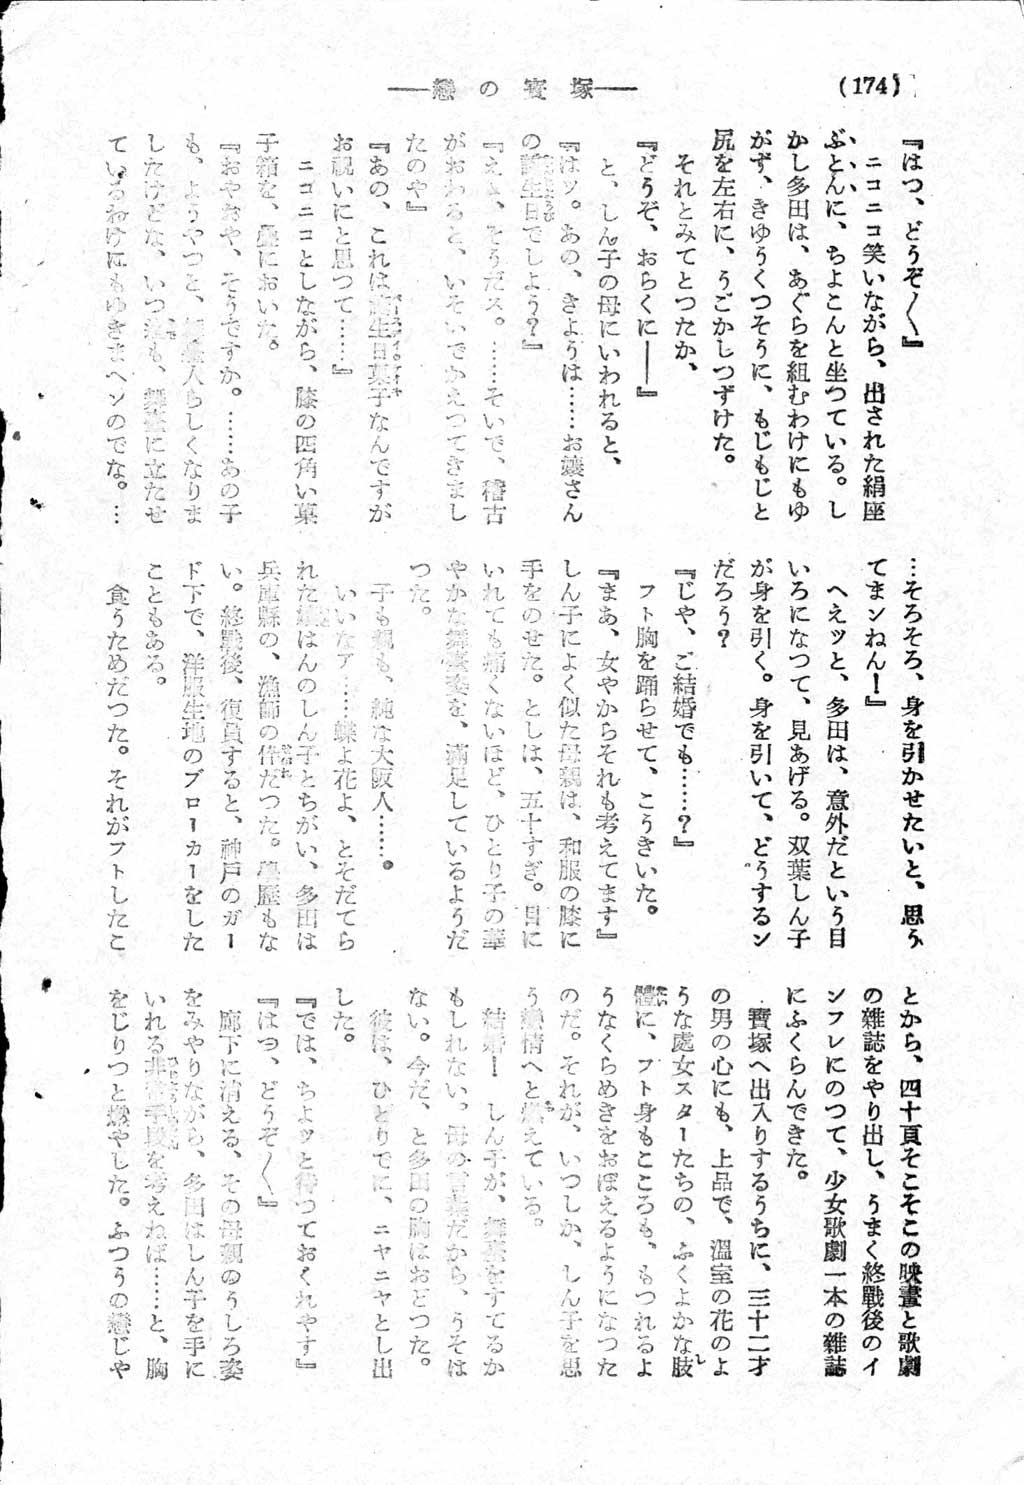 (174)
――戀の寳塚――
『はつ、どうぞ〱』
ニコニコ笑いながら、出された絹座
ぶとんに、ちよこんと坐つている。し
かし多田は、あぐらを組むわけにもゆ
がず、きゆうくつそうに、もじもじと
尻を左右に、うごかしつずけた。
それとみてとつたか、
『どうぞ、おらくに――』
と、しん子の母にいわれると、
『はッ。あの、きようは……お孃さん
の誕生日でしよう？』
『えゝ、そうだス。……そいで、稽古
がおわると、いそいでかえつてきまし
たのや』
『あの、これは誕生日菓子なんですが
お祝いにと思つて……』
ニコニコとしながら、膝の四角い菓
子箱を、疊においた。
『おやおや、そうですか。……あの子
も、ようやつと、舞臺人らしくなりま
したけどな、いつ迄も、舞臺に立たせ
ているわけにもゆきまヘンのでな。…
…そろそろ、身を引かせたいと、思う
てまンねん！』
へえッと、多田は、意外だという目
いろになつて、見あげる。双葉しん子
が身を引く。身を引いて、どうするン
だろう？
『じや、ご結婚でも……？』
フト胸を踊らせて、こうきいた。
『まあ、女やからそれも考えてます』
しん子によく似た母親は、和服の膝に
手をのせた。としは、五十すぎ。目に
いれても痛くないほど、ひとり子の華
やかな舞臺姿を、滿足しているようだ
つた。
子も親も、純な大阪人……。
いいなア……蝶よ花よ、とそだてら
れた孃はんのしん子とちがい、多田は
兵庫縣の、漁師の伜だつた。學歷もな
い。終戰後、復員すると、神戸のガー
ド下で、洋服生地のブローカーをした
こともある。
食うためだつた。それがフトしたこ
とから、四十頁そこそこの映畫と歌劇
の雜誌をやり出し、うまく終戰後のイ
ンフレにのつて、少女歌劇一本の雜誌
にふくらんできた。
寳塚へ出入りするうちに、三十二才
の男の心にも、上品で、溫室の花のよ
うな處女スターたちの、ふくよかな肢
體に、フト身もこころも、もつれるよ
うなくらめきをおぼえるようになつた
のだ。それが、いつしか、しん子を思
う戀情へと燃えている。
結婚！　しん子が、舞臺をすてるか
もしれない。母の言葉だから、うそは
ない。今だ、と多田の胸はおどつた。
彼は、ひとりでに、ニヤニヤとし出
した。
『では、ちよッと待つておくれやす』
『はつ、どうぞ〱』
廊下に消える、その母親のうしろ姿
をみやりながら、多田はしん子を手に
いれる非常手段を考えねば……と、胸
をじりつと燃やした。ふつうの戀じや